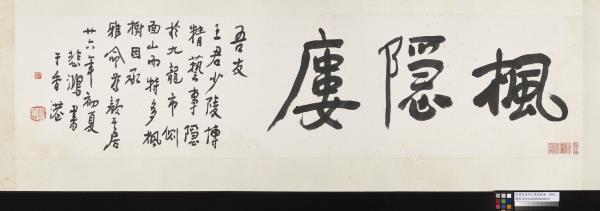 楓隱廔
吾友
王君少陵博
精藝事隱
於九龍市側
面山而特多楓
樹因承
雅命為顏其居
廿六年初夏
悲鴻書
于香港